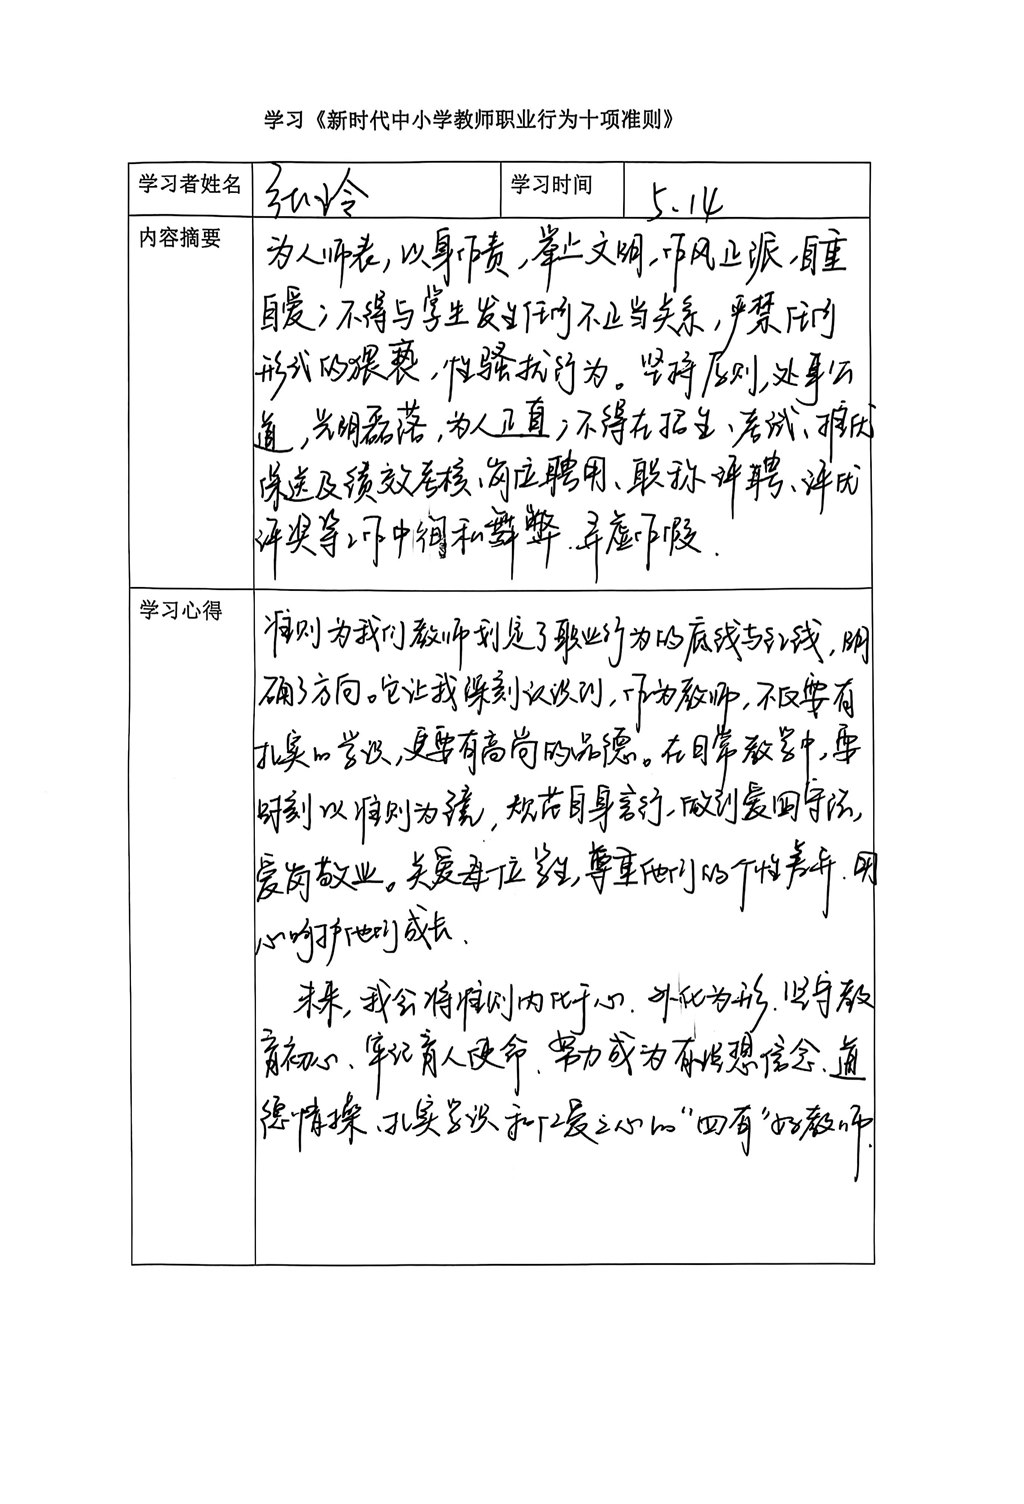 学习《新时代中小学教师职业行为十项准则》
学习者姓名 张玲 学习时间 5.14
内容摘要
为人师表，以身作责，举止文明，作风正派，自重
自爱；不得与学生发生任何不正当关系，严禁任何
形式的猥亵，性骚扰行为。坚持原则，处事公
道，光明磊落，为人正直；不得在招生、考试、推优
保送及绩效考核、岗位聘用、职称评聘、评优
评奖等工作中徇私舞弊、弄虚作假．
学习心得
准则为我们教师划定了职业行为的底线与红线，明
确了方向。它让我深刻认识到，作为教师，不仅要有
扎实的学识，更要有高尚的品德。在日常教学中，要
时刻以准则为镜，规范自身言行，做到爱国守法，
爱岗敬业。关爱每一位学生，尊重他们的个性差异．用
心呵护他们成长．
未来，我会将准则内化于心．外化为形．坚守教
育初心、牢记育人使命．努力成为有理想信念、道
德情操、扎实学识和仁爱之心的“四有”好教师．